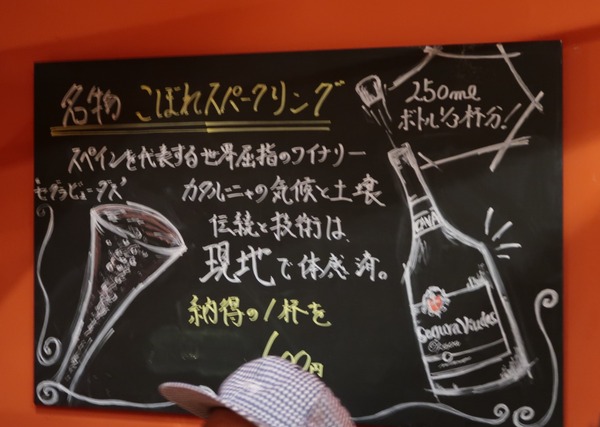 名物 こぼれスパークリング
スペインを代表する世界屈指のワイナリー
"セグラビューダス"
カタルーニャの気候と土壌
伝統と技術は、
現地で体感済。
納得の1杯を
250me
ボトル1/3杯分!
Segura Viudas